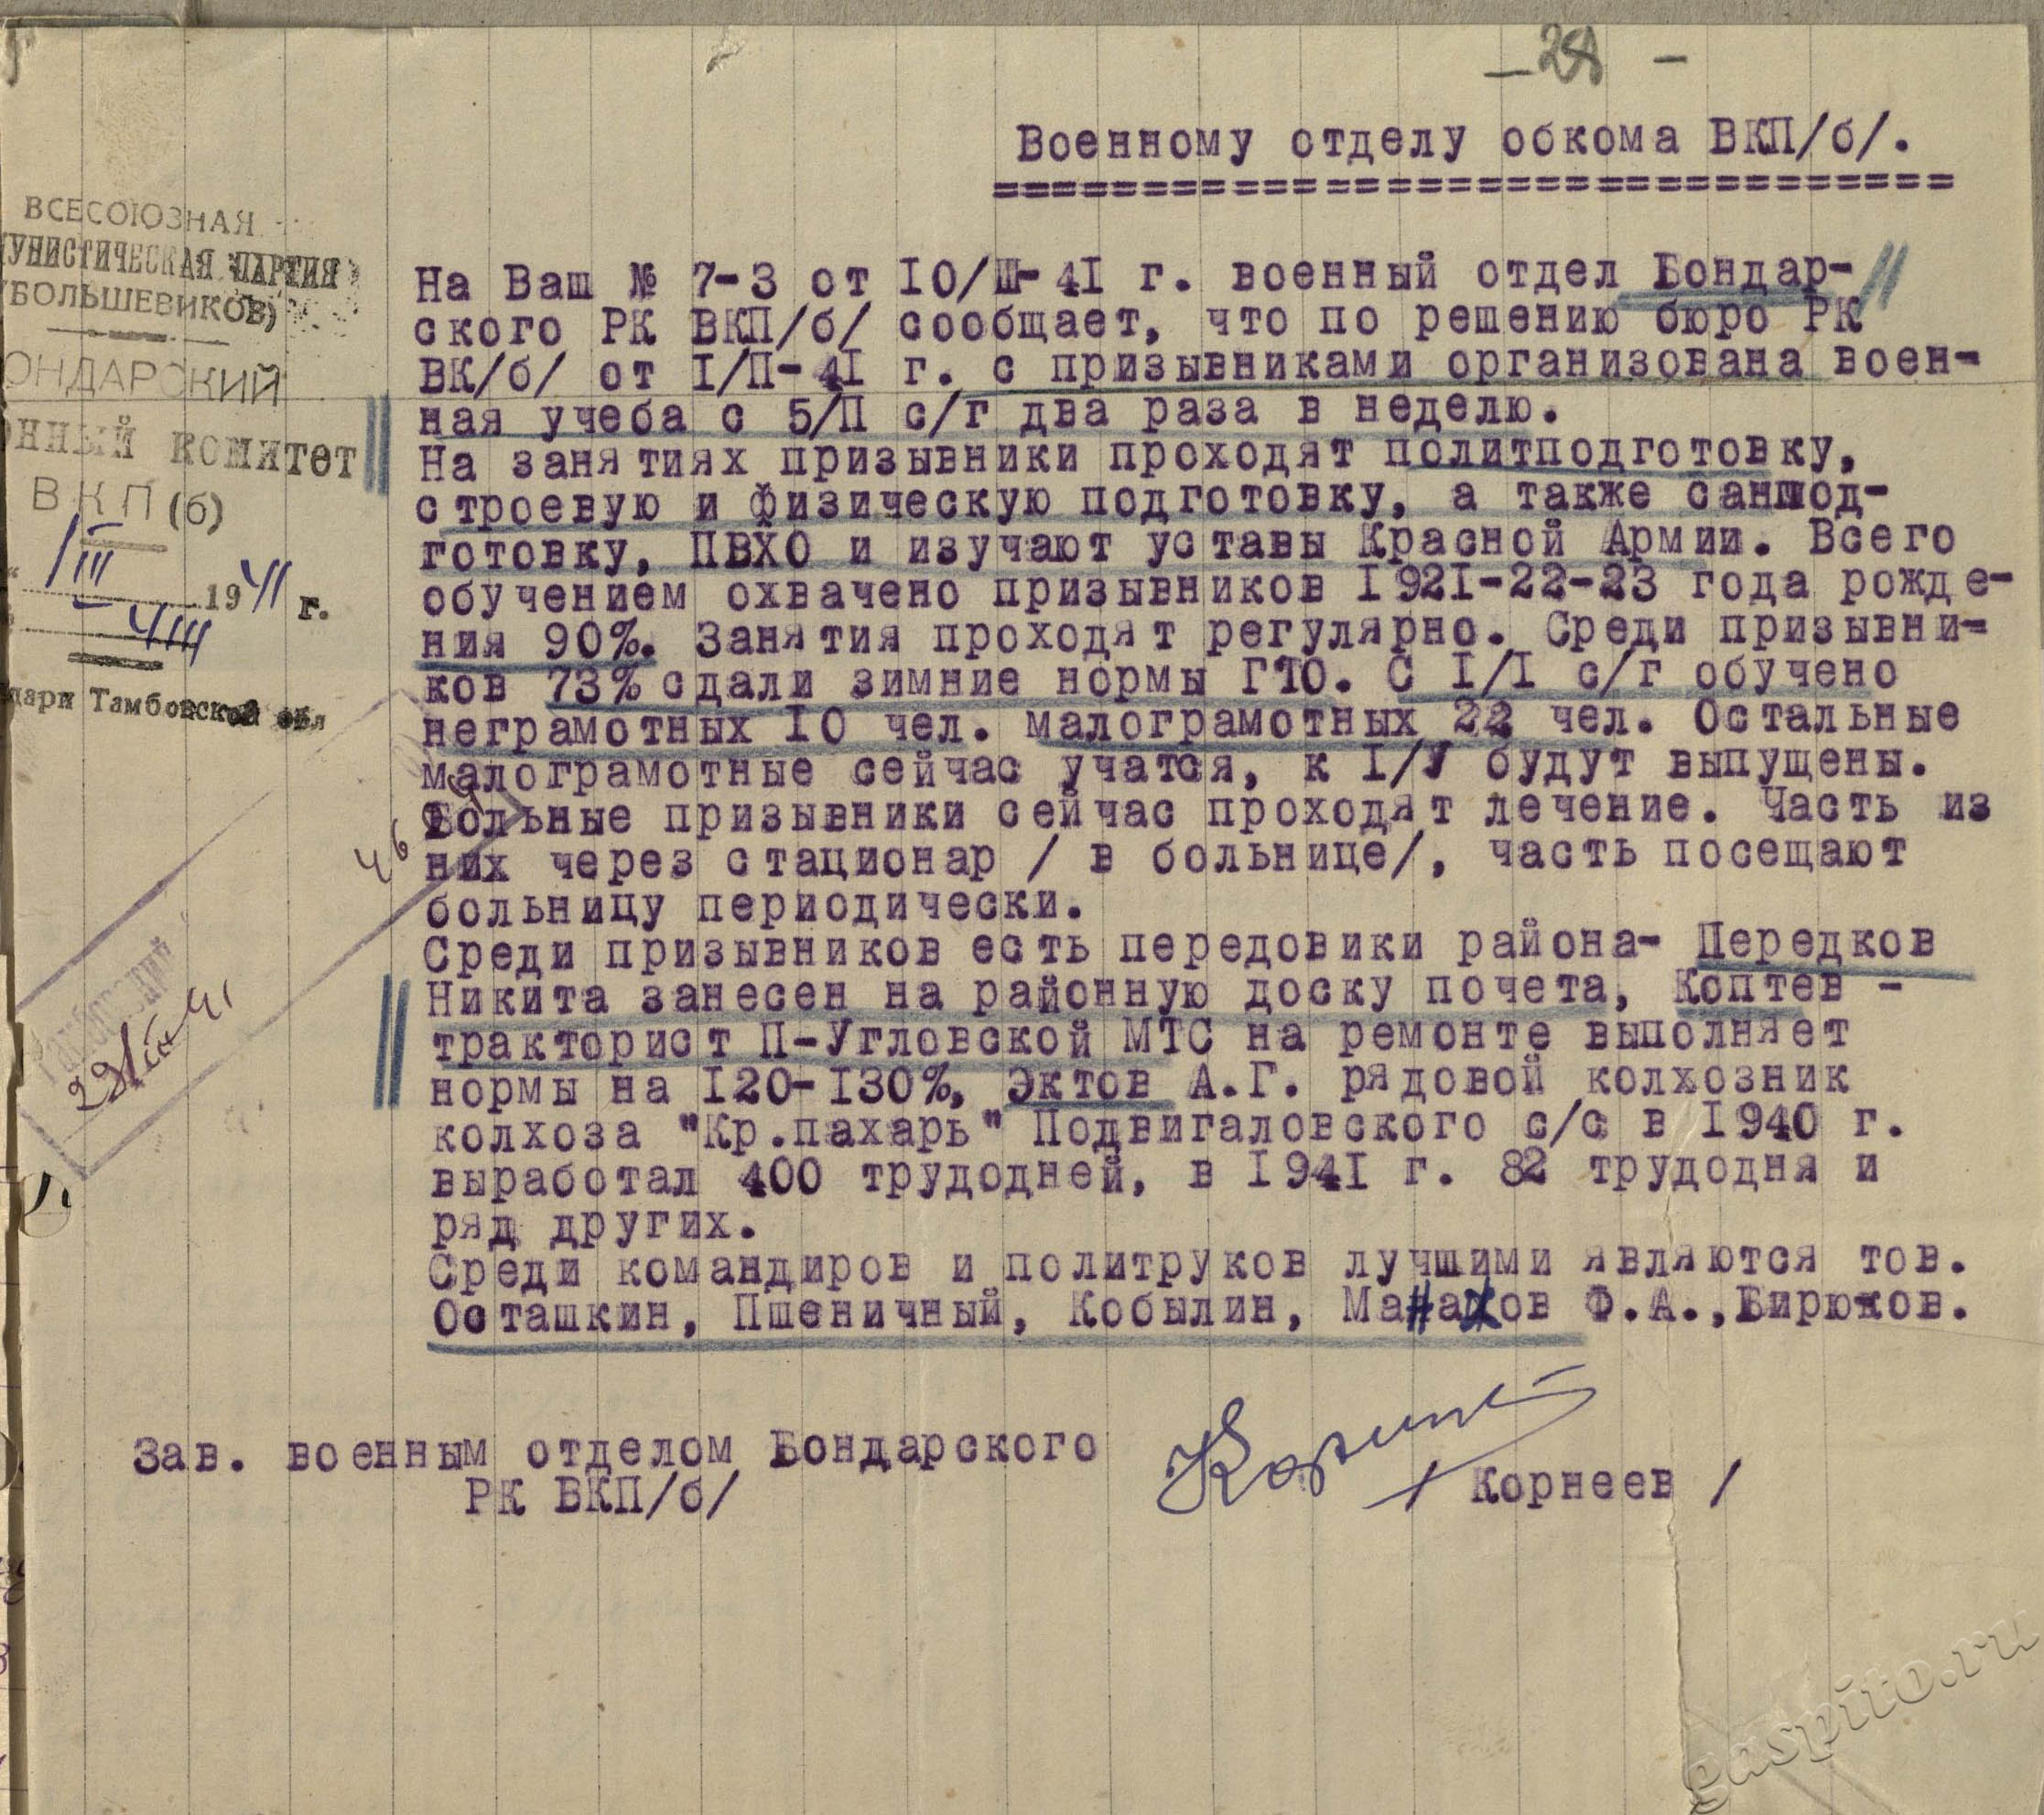 Военному отделу обкома ВКП/б/.
================================
ВСЕСОЮЗНАЯ
УНИСТИЧЕСКАЯ ПАРТИЯ
БОЛЬШЕВИКОВ)
ОНДАРСКИЙ
ОННЫЙ КОМИТЕТ
ВКП(б)
III
1941 г.
дари Тамбовской обл
На Ваш № 7-3 от IO/Ш-4I г. военный отдел Бондар-
ского РК ВКП/б/ сообщает, что по решению бюро РК
ВК/б/ от I/П-4I г. с призывниками организована воен-
ная учеба с 5/П с/г два раза в неделю.
На занятиях призывники проходят политподготовку,
строевую и физическую подготовку, а также санпод-
готовку, ПВХО и изучают уставы Красной Армии. Всего
обучением охвачено призывников I92I-22-23 года рожде-
ния 90%. Занятия проходят регулярно. Среди призывни-
ков 73% сдали зимние нормы ГТО. С I/I с/г обучено
неграмотных IO чел. малограмотных 22 чел. Остальные
малограмотные сейчас учатся, к I/У будут выпущены.
Больные призывники сейчас проходят лечение. Часть из
них через стационар / в больнице/, часть посещают
больницу периодически.
Среди призывников есть передовики района- Передков
Никита занесен на районную доску почета, Коптев -
тракторист П-Угловской МТС на ремонте выполняет
нормы на I20-I30%, Эктов А.Г. рядовой колхозник
колхоза "Кр.пахарь" Подвигаловского с/с в I940 г.
выработал 400 трудодней, в I94I г. 82 трудодня и
ряд других.
Среди командиров и политруков лучшими являются тов.
Осташкин, Пшеничный, Кобылин, Манахов Ф.А.,Бирюков.
Зав. военным отделом Бондарского
РК ВКП/б/
/ Корнеев /
gaspito.ru